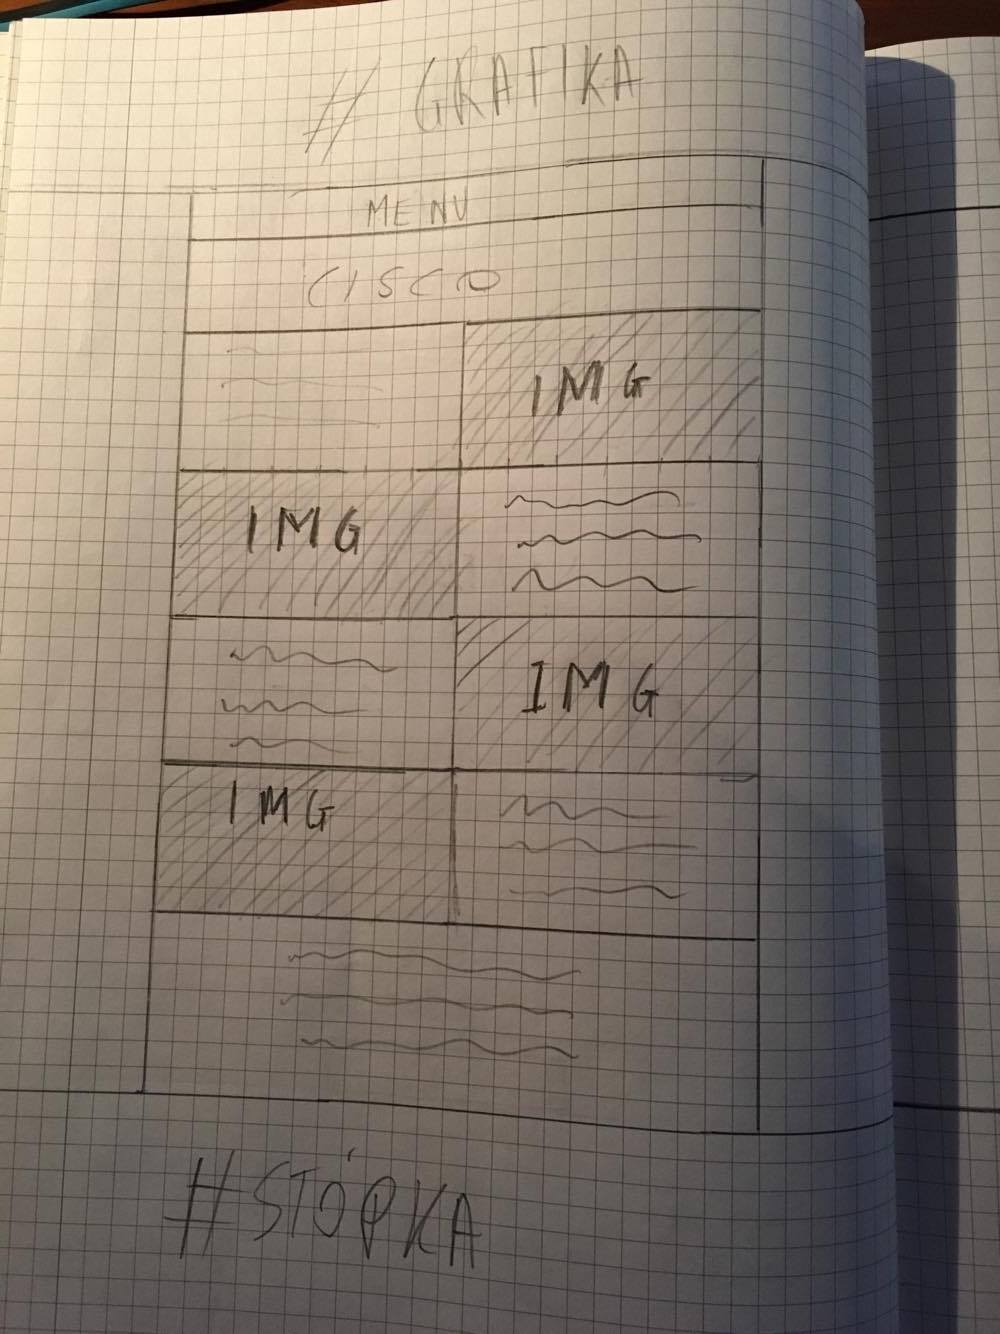 # GRAFIKA
MENU
CISCO
IMG
IMG
IMG
IMG
#STÓPKA